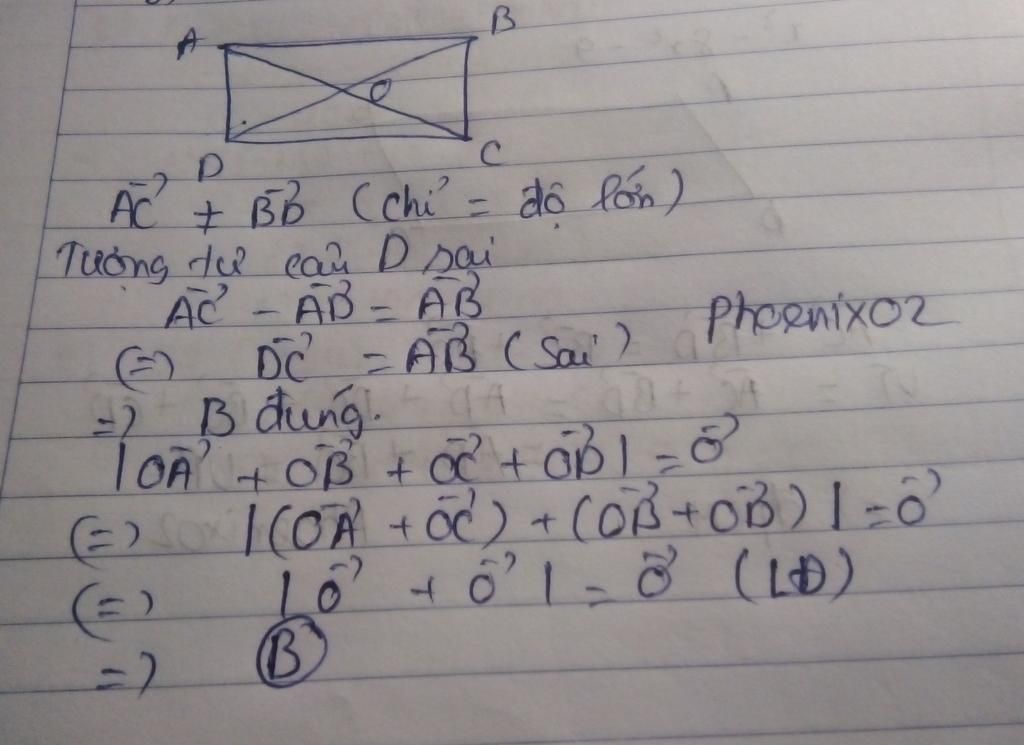 A B
O
D C
AC⃗ ≠ BD⃗ (chỉ = độ lớn)
Tương tự câu D sai
AC⃗ - AD⃗ = AB⃗
(=) DC⃗ = AB⃗ (Sai)
Phoenix02
=> B đúng.
|OA⃗ + OB⃗ + OC⃗ + OD⃗| = O⃗
(=) |(OA⃗ + OC⃗) + (OB⃗ + OD⃗)| = O⃗
(=) |O⃗ + O⃗| = O⃗ (LĐ)
=> B